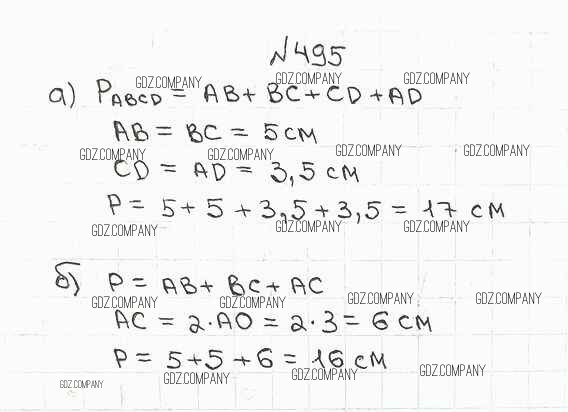 №495
а) P ABCD = AB + BC + CD + AD
AB = BC = 5 см
CD = AD = 3,5 см
P = 5 + 5 + 3,5 + 3,5 = 17 см
б) P = AB + BC + AC
AC = 2·AO = 2·3 = 6 см
P = 5 + 5 + 6 = 16 см
GDZ.COMPANY GDZ.COMPANY GDZ.COMPANY
GDZ.COMPANY GDZ.COMPANY GDZ.COMPANY GDZ.COMPANY
GDZ.COMPANY GDZ.COMPANY GDZ.COMPANY
GDZ.COMPANY GDZ.COMPANY GDZ.COMPANY GDZ.COMPANY
GDZ.COMPANY GDZ.COMPANY GDZ.COMPANY GDZ.COMPANY